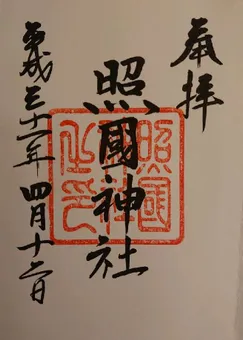 奉拝
照國神社
平成三十一年四月十二日
照國神社之印